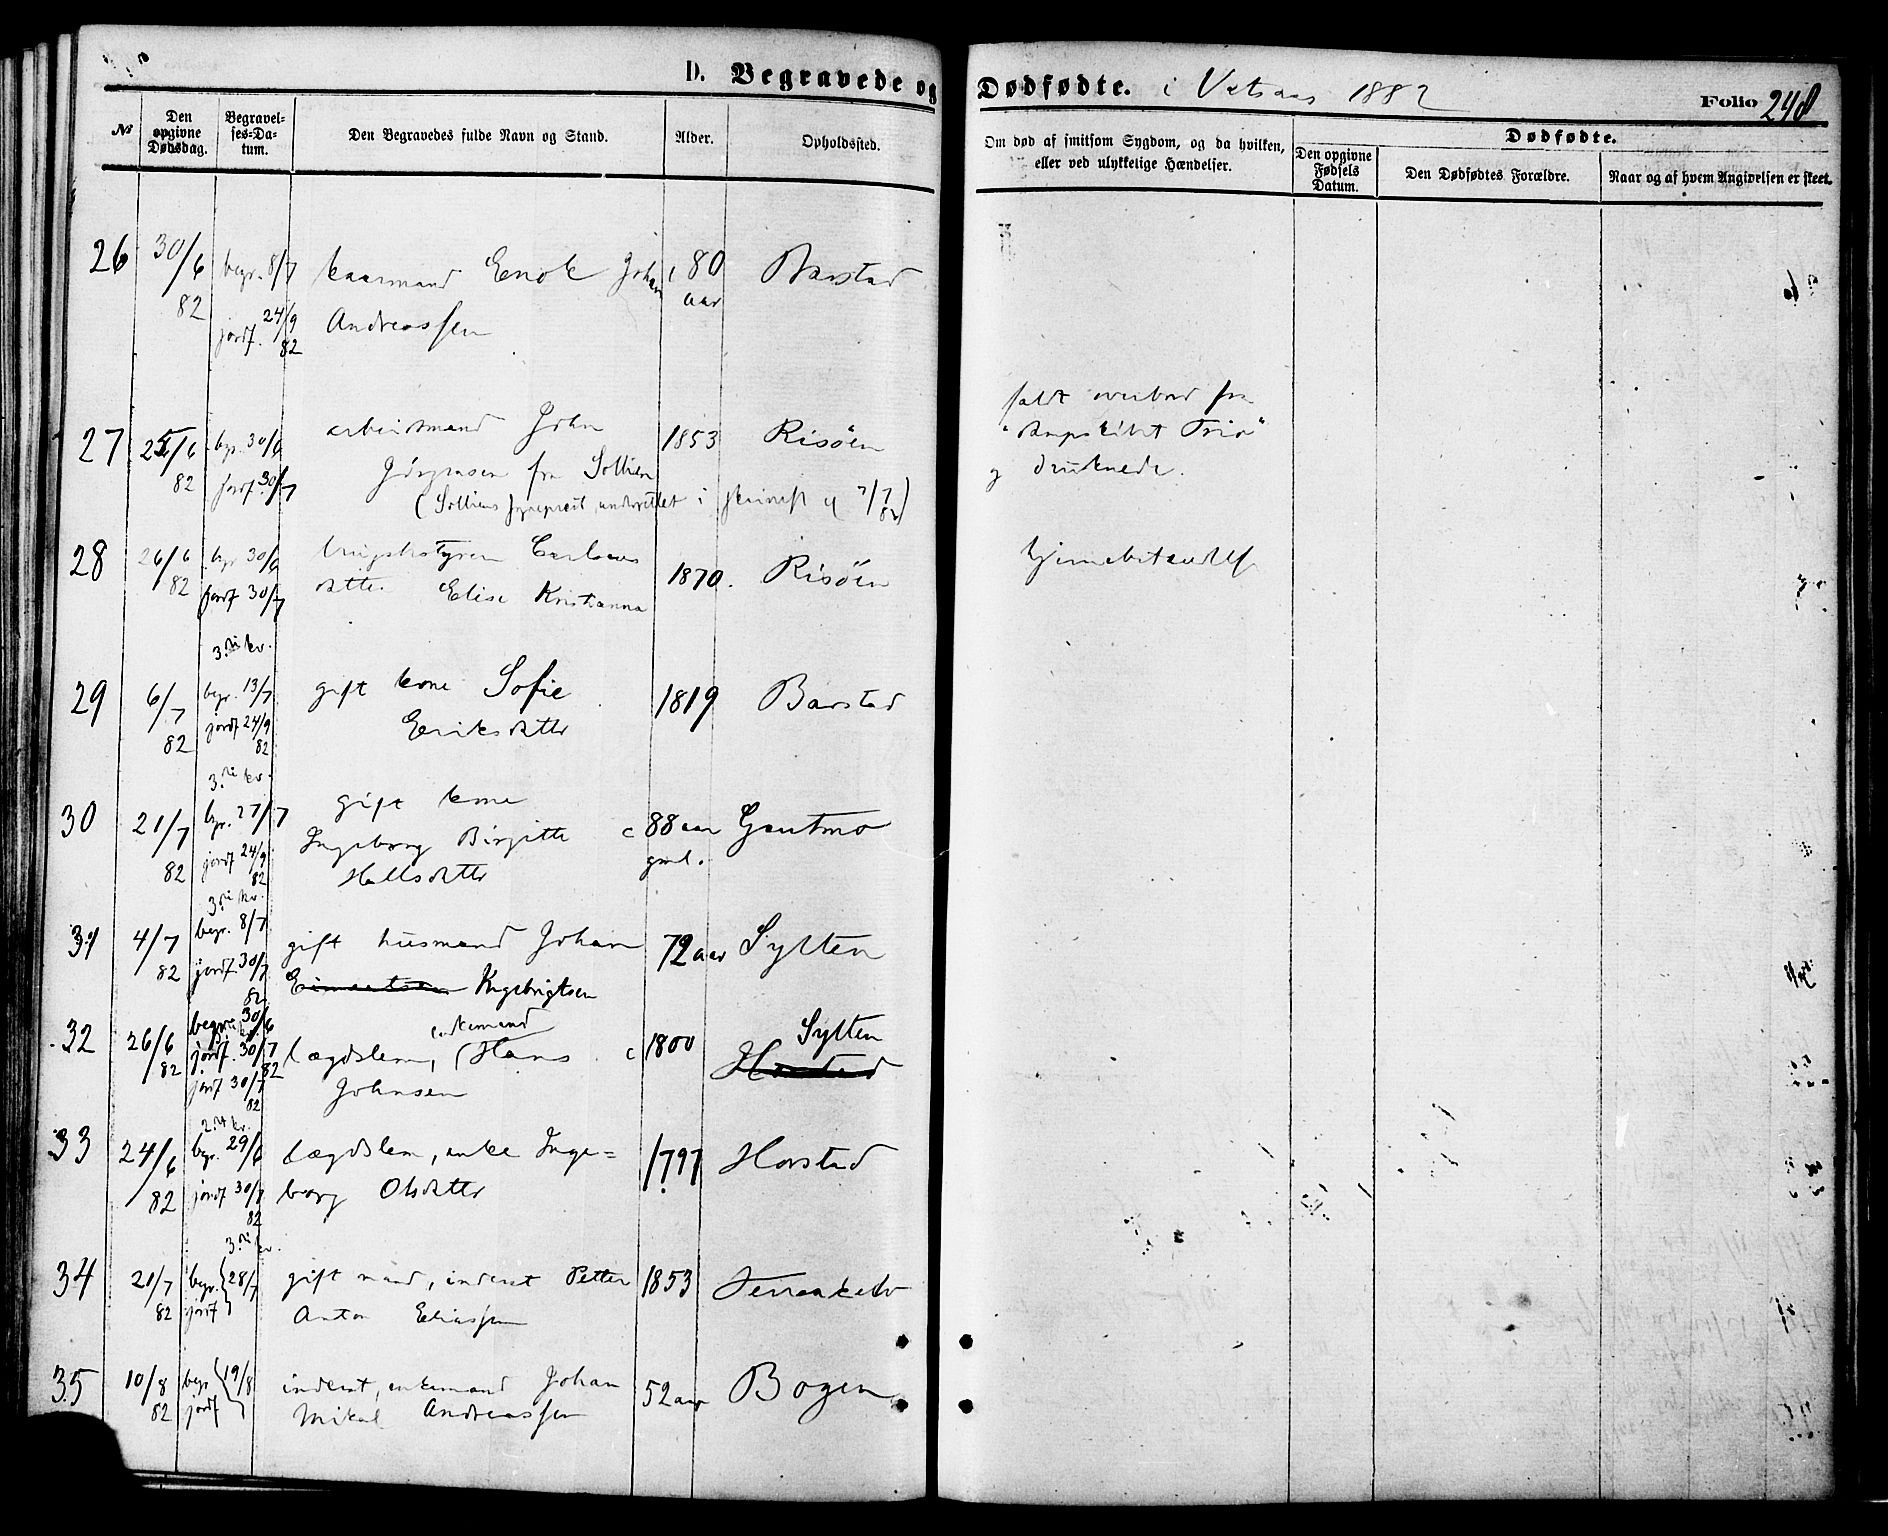 D. Begravede og Dødfødte. i Vetsaas 1882
Folio 248
№
Den opgivne Dødsdag.
Begravelses-Datum.
Den Begravedes fulde Navn og Stand.
Alder.
Opholdssted.
Om død af smitsom Sygdom, og da hvilken,
eller ved ulykkelige Hændelser.
Dødfødte.
Den opgivne Fødsels Datum.
Den Dødfødtes Forældre.
Naar og af hvem Angivelsen er skeet.
26 30/6 begr. 8/7 kaarmand Enok Johan 80 Barstad
82 jordf. 24/9 82 Andreassen aar
faldt overbord fra
27 25/6 begr. 30/6 arbeidsmand John 1853 Risöen
82 jordf 30/7 Jörgensen fra Sollien
og druknede.
28 26/6 begr 30/6 1870. Risöen
82 jordf 30/7 datter Elise Kristianna
hjernebetændelse
3die kr.
29 6/7 begr. 13/7 gift kone Sofie 1819 Barstad
82 jordf 24/9 82 Eriksdatter
3die kr.
30 21/7 begr. 27/7 gift kone
Ingeborg Birgitte c 88 aar Gautmo
82 jordf 24/9 82 Hallsdatter gml.
3die kr.
31 4/7 begr. 8/7 gift husmand Johan 72 aar Sylten
82 jordf. 30/7 82 Ingebrigtsen
32 26/6 begr. 30/6 enkemand Sylten
82 jordf. 30/7 82 lægdslem, Hans c 1800 Horstad
jordf 30/7 82 Johnsen
2det kr.
33 24/6 begr. 29/6 lægdslem, enke Inge= 1797 Horstad
82 jordf 30/7 82 borg Olsdatter
3die kr.
34 21/7 begr. 28/7 gift mand, inderst Petter 1853
82 jordf Anton Eliassen
35 10/8 begr 19/8 inderst, enkemand Johan 52 aar Bogen
82 jordf Mikal Andreassen